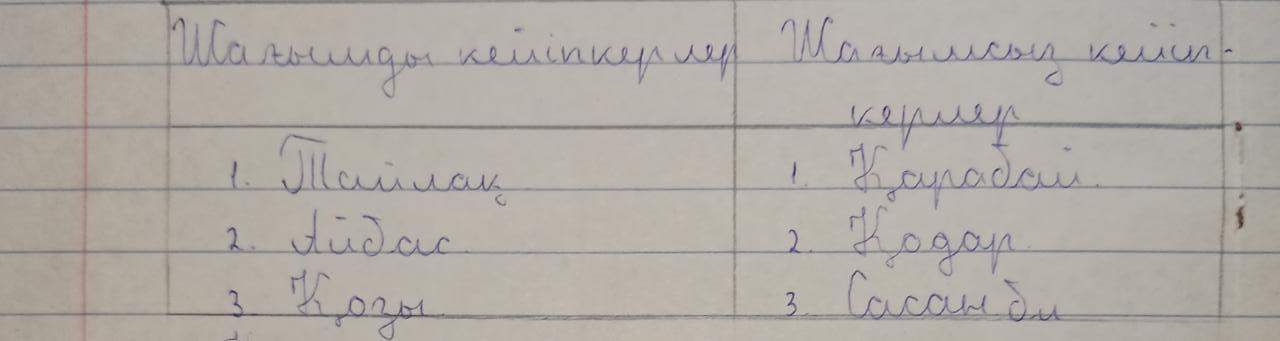 Жағымды кейіпкерлер Жағымсыз кейіп-
керлер
1. Тайлақ 1. Қарабай.
2. Айбас 2. Қодар
3 Қозы 3. Сасан би